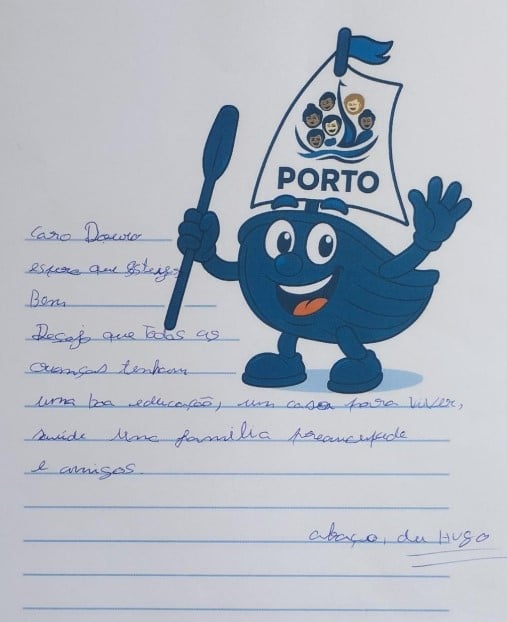 PORTO
Caro Douro
espero que estejas
Bem
Desejo que Todas as
crianças tenham
uma boa educação, um casa para viver,
saúde uma família
e amigos.
abraço, do HUGO